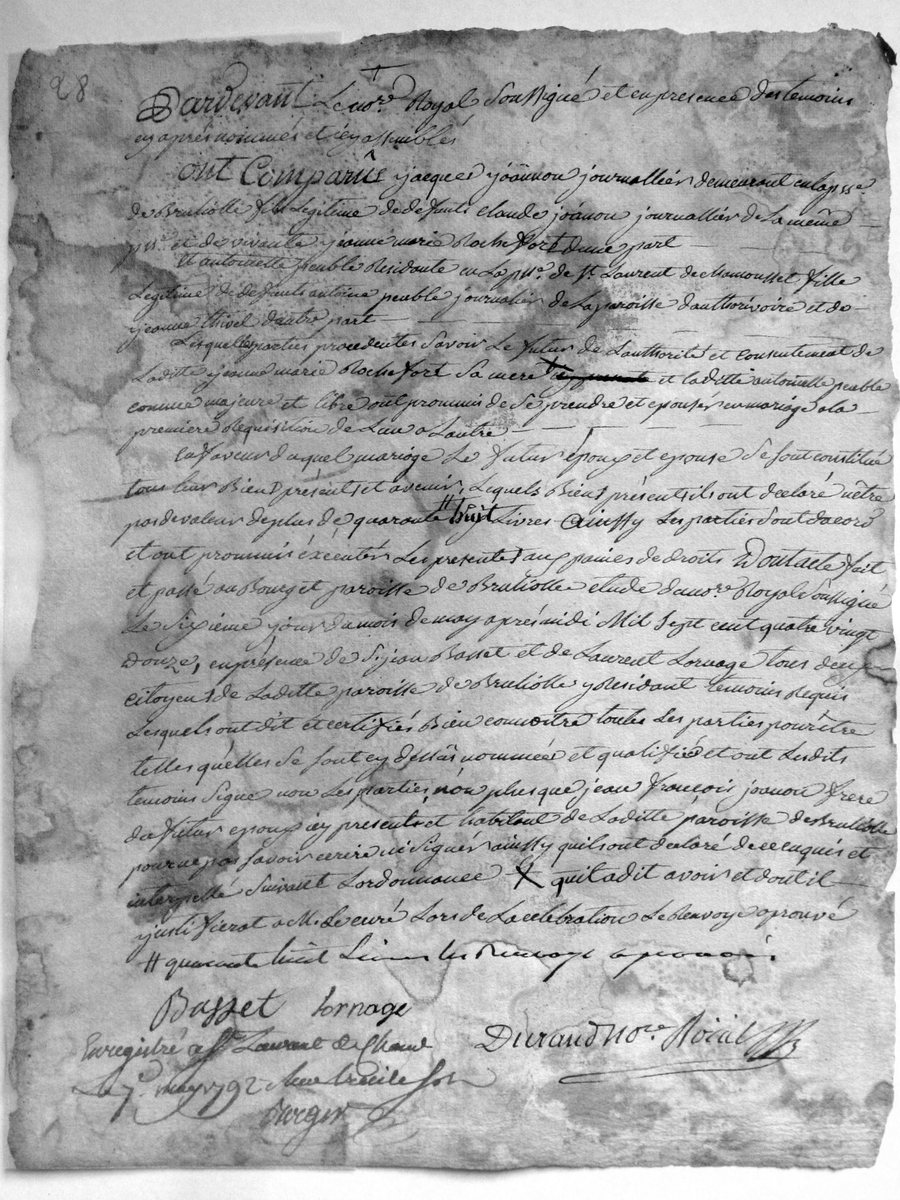 28
Pardevant Le nore Royal Soussigné et en presence des temoins
cy aprés nommés et icy assemblés
ont Comparûs jacques joânnon journallier demeurant en la psse
de Brulliolle fils Legitime de defunts claude joânon journallier de La même
psse et de vivante jeanne marie Rochefort d'une part
Et antoinette peuble Residante en La psse de St Laurent de Chamousset fille
Legitime de defunts antoine peuble journalier de La paroisse d'authoivoire et de
jeanne thivel d'autre part
Lesquelles parties procedentes Savoir Le futur de L'authorité et consentement de
Laditte jeanne marie Rochefort Sa mere et laditte antoinette peuble
comme majeure et libre ont prommis de Se prendre et epouser en mariage a la
premiere Requisition de L'un a Lautre
En faveur duquel mariage Le futur époux et epouse Se sont constitué
tous leur Biens présents et avenir, Lequels Biens présents ils ont declaré n'être
pas de valeur de plus de quarante huit Livres ainssy Les parties Sont d'acord
et ont prommis éxécuter Les presentes aux paines de droits Dont acte fait
et passé au Bourg et paroisse de Brulliolle etude du nore Royal Soussigné
Le Sixieme jour du mois de may aprés midi Mil Sept cent quatre vingt
Douze, en présence de Sr jean Basset et de Laurent Lornage tous deux
citoyens de Laditte paroisse de Brulliolle y Residant temoins Requis
Lesquels ont dit et certifiés Bien connoitre toutes Les parties pour être
telles quélles Se sont cy dessûs nommée et qualifié et ont Lesdits
temoins Signe non Les parties nón plus que jean françois joanon frere
du futur epoux icy présents et habitant de Laditte paroisse de Brulliolle
pour ne pas Savoir ecrire ni Signér ainssy quils ont declaré de ce enquis et
interpellé Suivant L'ordonnance X quil a dit avoir et dont il
justifierat a Mr Le curé Lors de La célébration Le Renvoye aprouvé
# quarante huit Livres les Renvoys aprouvés
Basset Lornage
Durand nore Roial
Enregistré a St Laurent de Cham
Le 7e may 1792